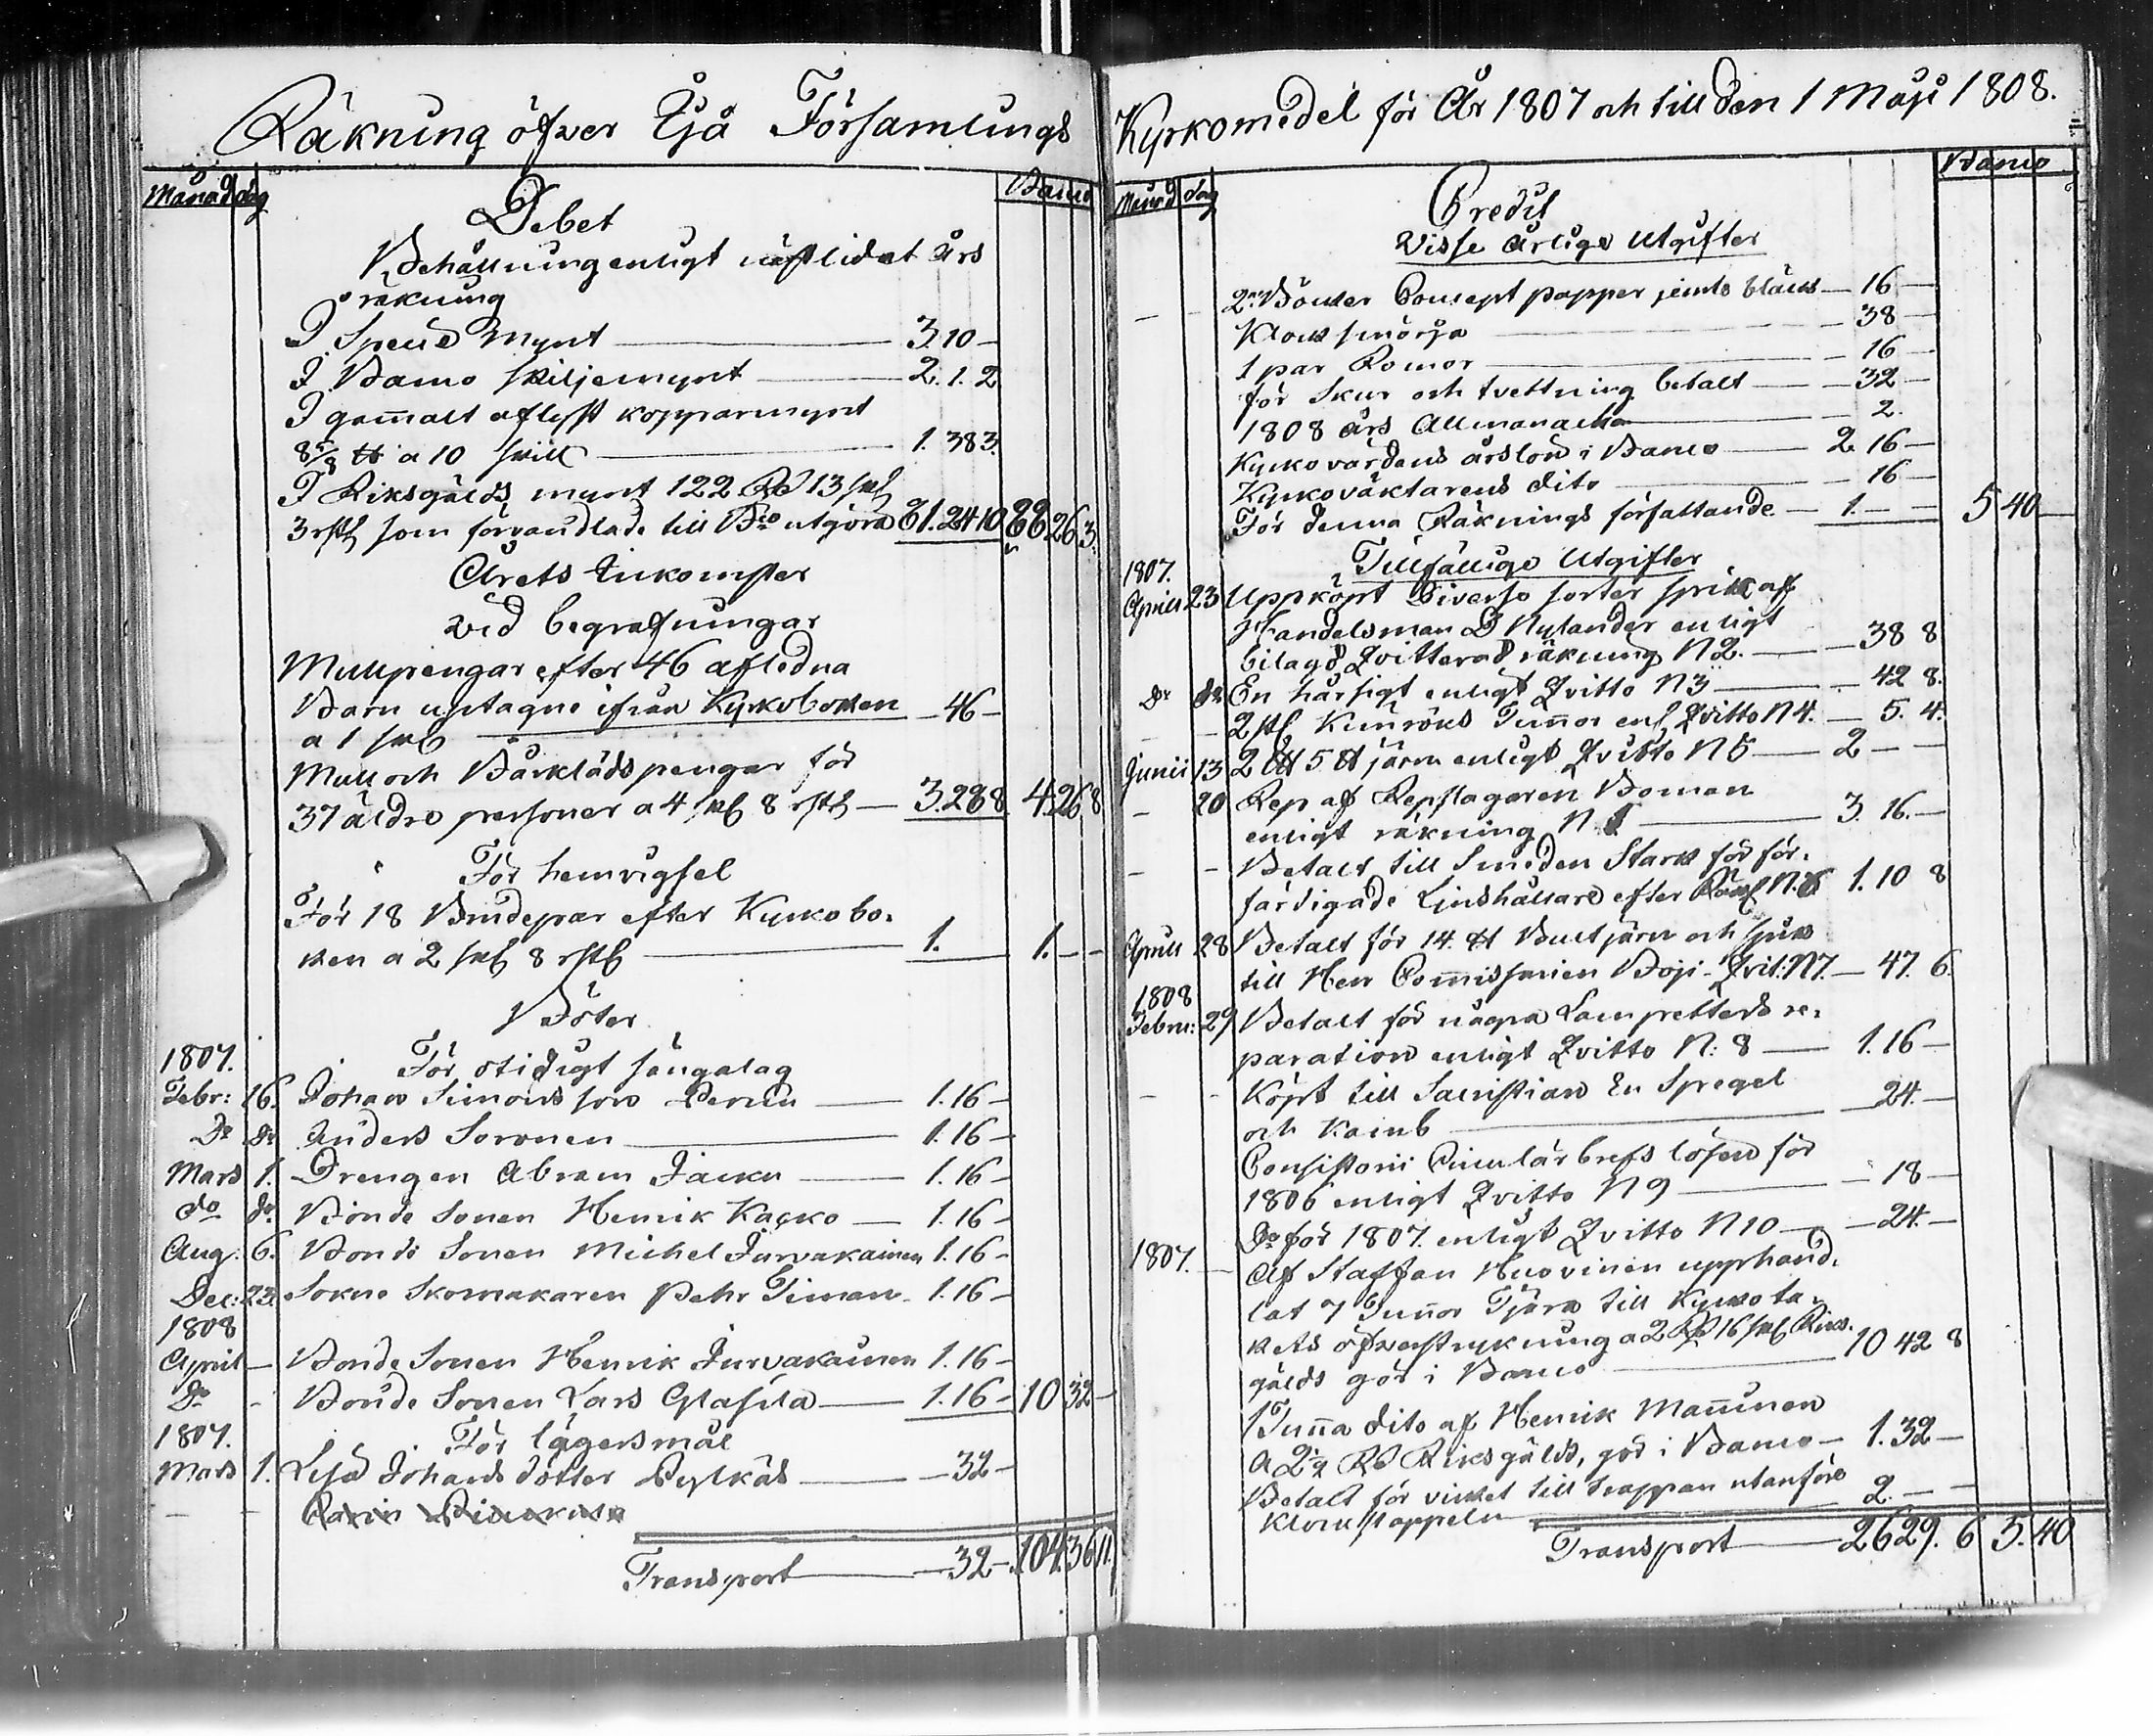 Räkning öfver Ijå Församlings
Månad dag
Banco
Debet
Behållning enligt nästlidet års
räkning
I Specie Mynt — 3. 10 —
I Banco skiljemynt — 2. 1. 2
I gamalt aflyst kopparmynt
8 5/8 ℔ a 10 skill — 1. 38 3.
I Riksgälds mynt 122 Rd 13 sk
3 rst som förvandlade till Bco utgöra 81. 24 10 88 26 3.
Årets Inkomster
vid begrafningar
Mullpengar efter 46 afledna
Barn uptagne ifrån Kyrkoboken
a 1 sk — 46 —
Mull och Bårklädspengar för
37 äldre personer a 4 sk 8 rst — 3. 28 8 4. 26 8
För hemvigsel
För 18 Brudepar efter Kyrkobo-
ken a 2 sk 8 rst — 1. 1. — —
Böter
1807. För otidigt sängalag
Febr: 16. Johan Simonsson — 1. 16 —
Do Do Anders Soronen — 1. 16 —
Mars 1. Drengen Abram Jacku — 1. 16 —
do do Bonde Sonen Henrik Kacko — 1. 16 —
Aug: 6. Bonde Sonen Michel Jurvakainen 1. 16 —
Dec: 23. Sokne Skomakaren Pehr Timan — 1. 16 —
1808
April — Bonde Sonen Henrik Jurvakainen 1. 16 —
Do - Bonde Sonen Lars Glasila — 1. 16 — 10 32 —
1807. För lägersmål
Mars 1. Lisa Johans dotter Pylkäs — 32 —
Carin
Transport — 32 — 104. 36 11.
Kyrkomedel för År 1807 och till den 1 Maji 1808.
Månad dag
Banco
Credit
Visse årlige Utgifter
2ne Böcker Concept papper jemte bläck — 16 —
Klocksmörja — 38 —
1 par Remor — 16 —
för Skur och tvettning betalt — 32 —
1808 års Allmanacka — 2.
Kyrkovärdens årslön i Banco — 2. 16 —
Kyrkoväktarens dito — 16 —
För denna Räknings författande — 1. — — 5 40 —
Tillfällige Utgifter
1807.
Aprill 23 Uppköpt Diverse sorter spik af
Handelsman D Nylander enligt
bilagd Qvitterad räkning N 2. — 38 8
Do Do En hårsigt enligt Qvitto N 3 — 42 8.
2 st Kimröks Tunnor enl Qvitto N 4. — 5. 4.
Junii 13 2 L℔ 5 ℔ järn enligt Qvitto N 5 — 2 — —
- 20 Rep af Repslagaren Boman
enligt räkning N 1 — 3. 16. —
- - Betalt till Smeden Stark för för-
färdigade Ljushållare efter Räk N. 6 1. 10 8
Aprill 28 Betalt för 14 ℔ Bultjärn och spik
till Herr Commissarien Boji Qvit: N 7. — 47. 6.
1808
Febru: 29 Betalt för några Lampetters re-
paration enligt Qvitto N: 8 — 1. 16 —
- - Köpt till Sacristian En Spegel
och Kamb — 24. —
Consistorii Circulär brefs lösen för
1806 enligt Qvitto N 9 — 18 —
Do för 1807 enligt Qvitto N 10 — 24. —
1807. — Af Staffan Huovinen upphand-
lat 7 Tunnor Tjära till Kyrko ta-
kets öfverstrykning a 2 Rd 16 sk Riks-
gälds gör i Banco — 10 42 8
1 Tunna dito af Henrik Manninen
a 2 1/2 Rd Riksgälds, gör i Banco — 1. 32 —
Betalt för virket till trappan utanföre
Klockstappeln — 2. — —
Transport — 26 29. 6 5. 40